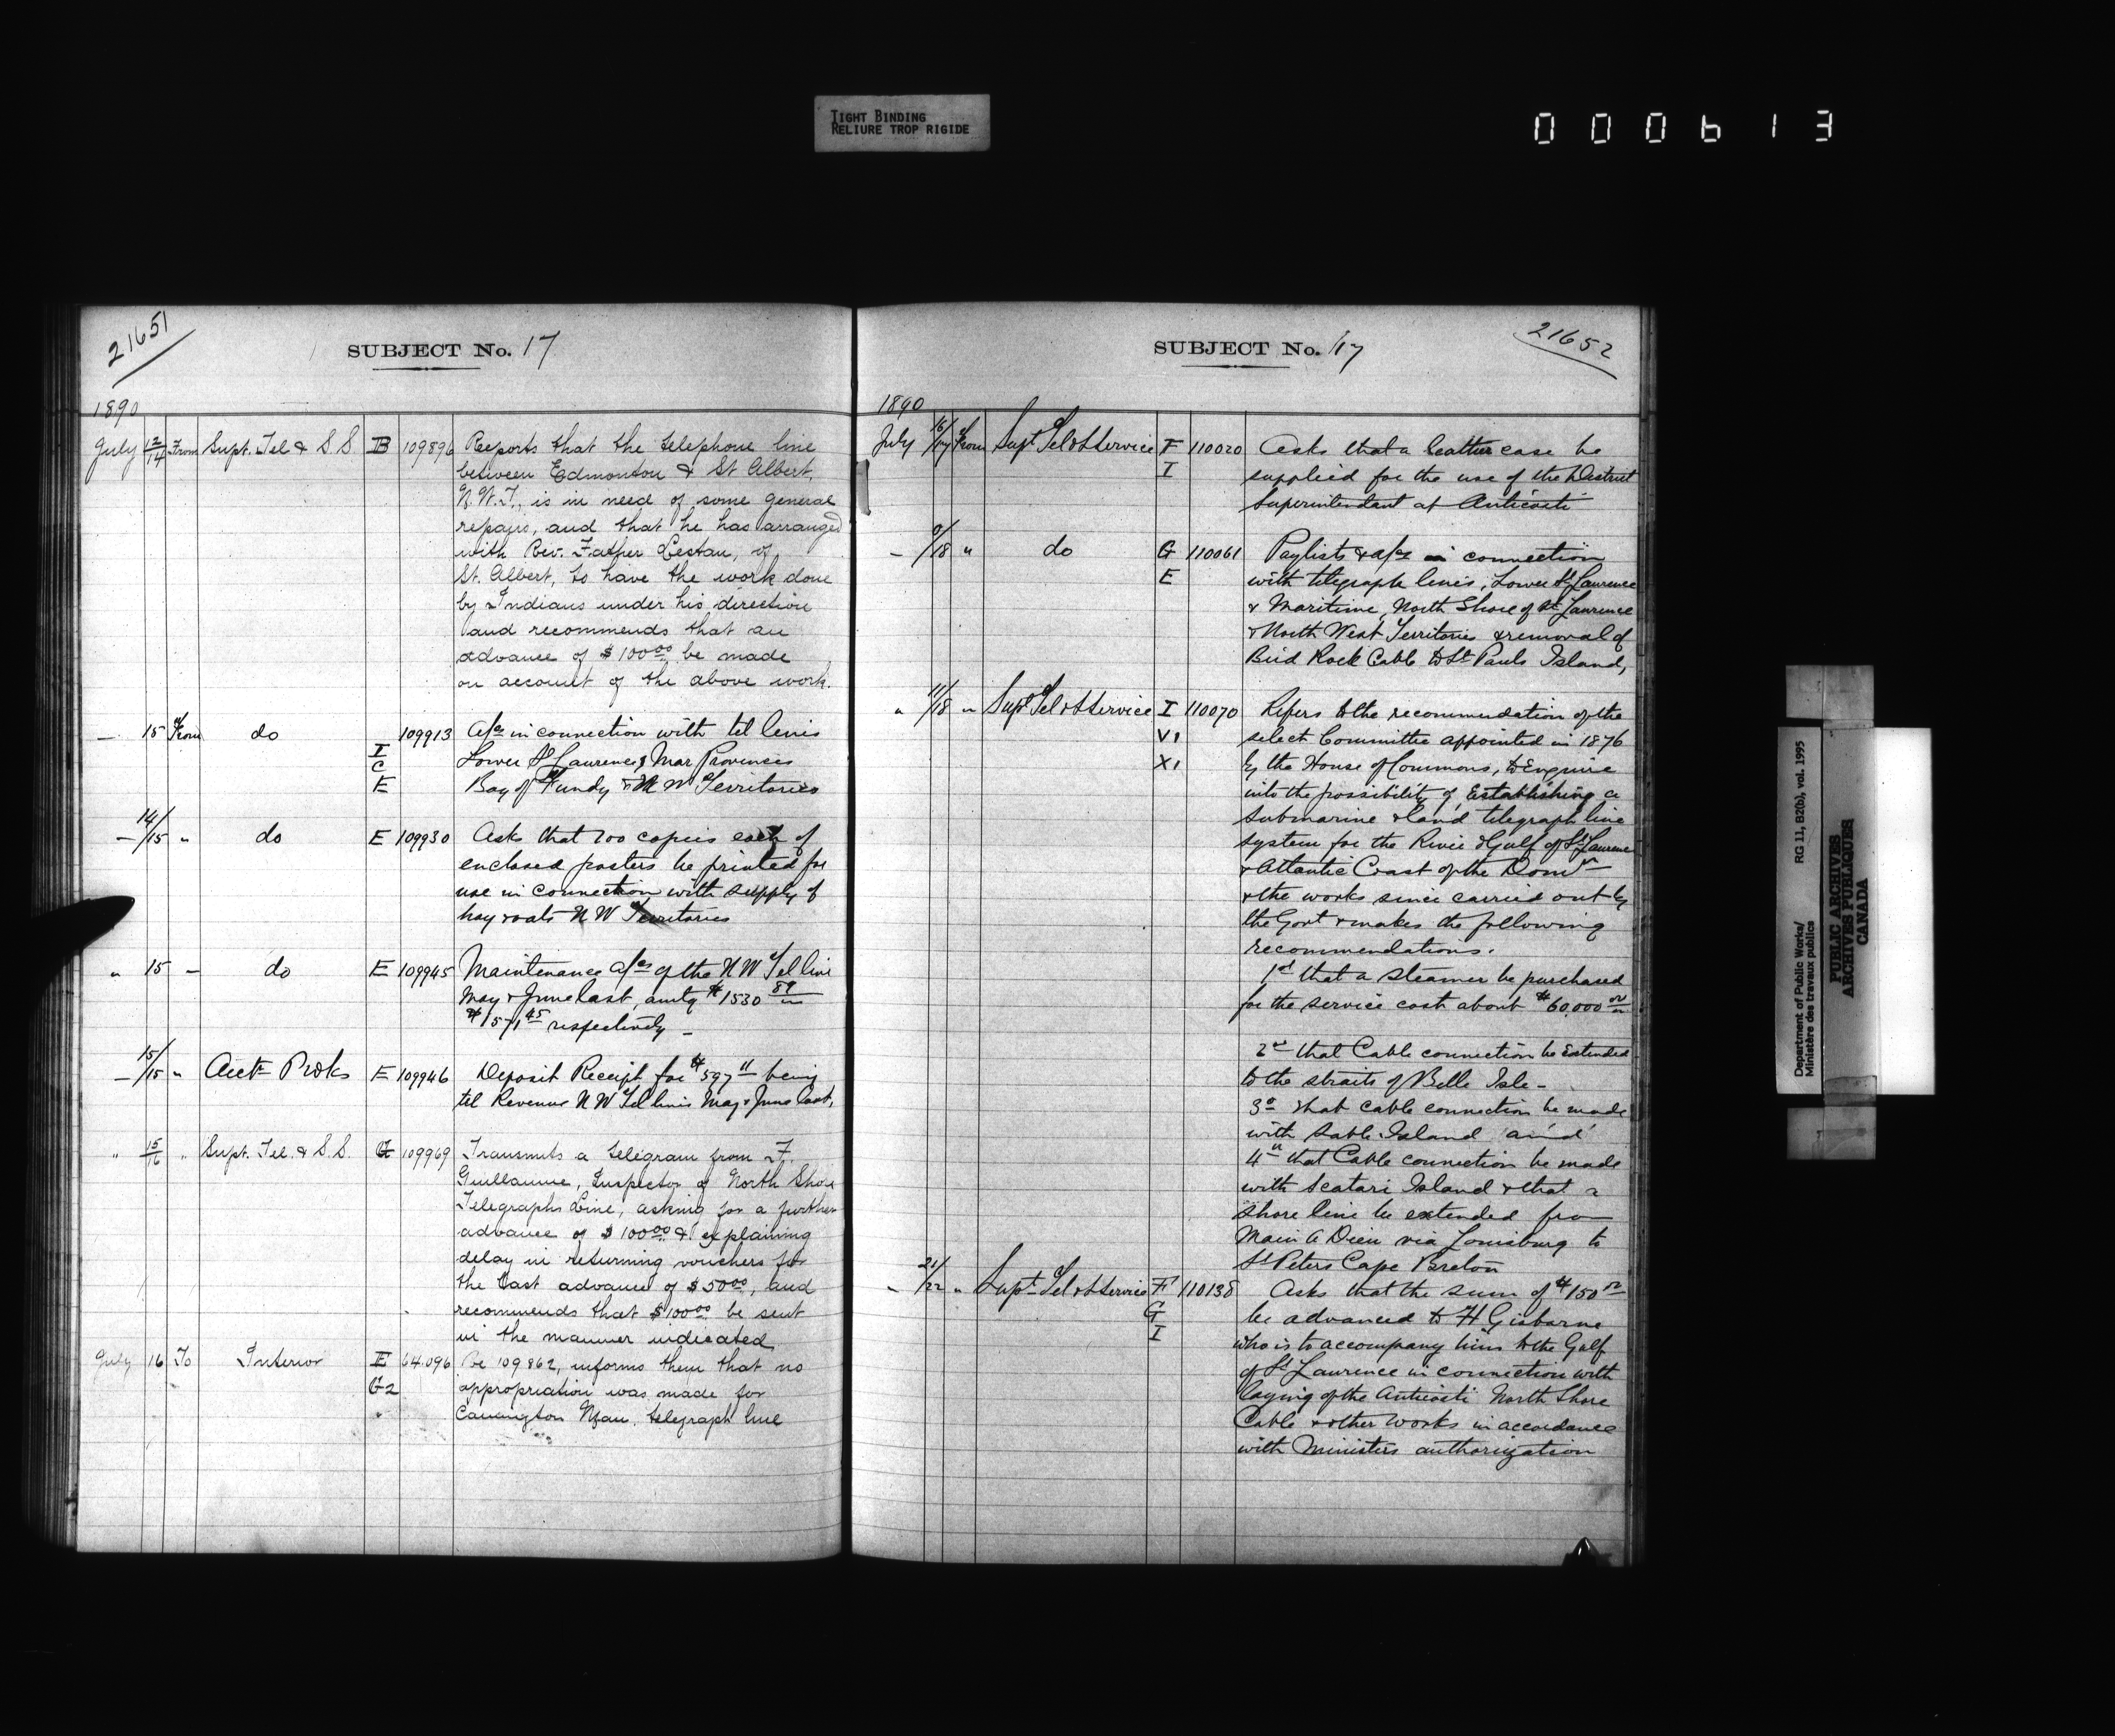 TIGHT BINDING
RELIURE TROP RIGIDE
000613
21651
SUBJECT No. 17
1890
July 12/14 From Supt. Tel & S.S B 109896 Reports that the telephone line
between Edmonton & St Albert,
N.W.T., is in need of some general
repairs, and that he has arranged
with Rev. Father Lestau, of
St. Albert, to have the work done
by Indians under his direction
and recommends that an
advance of $100.00 be made
on account of the above work.
— 15 From do I C E 109913 A/cs in connection with tel lines
Lower St Laurence & Mar Provinces
Bay of Fundy & N W Territories
— 14/15 " do E 109930 Asks that 200 copies each of
enclosed posters be printed for
use in connection with supply of
hay & oats N W Territories
" 15 — do E 109945 Maintenance a/cs of the N W Tel line
May & June last, amtg $1530 89
$1571 45 respectively —
— 15/15 " E 109946 Deposit Receipt for $597 11 being
tel Revenue N W Tel lines May & June last,
" 15/16 " Supt. Tel. & S.S. G 109969 Transmits a telegram from F.
Guillaume, Inspector of North Shore
Telegraphs Line, asking for a further
advance of $100.00 & explaining
delay in returning vouchers for
the last advance of $50.00, and
recommends that $100.00 be sent
in the manner indicated
July 16 To Interior E G2 64.096 Re 109862, informs them that no
appropriation was made for
telegraph line
21652
SUBJECT No. 17
1890
July 16/17 From Supt Tel & S Service F I 110020 Asks that a leather case be
supplied for the use of the District
Superintendant at Anticosti
— 9/18 " do G E 110061 Paylists & a/cs in connection
with telegraph lines, Lower St Laurence
& Maritime, North Shore of St Laurence
& North West Territories & removal of
Bird Rock Cable to St Pauls Island,
" 11/18 " Supt Tel & S Service I VI XI 110070 Refers to the recommendation of the
select Committee appointed in 1876
by the House of Commons, to Enquire
into the possibility of Establishing a
submarine & land telegraph line
system for the River & Gulf of St Laurence
& Atlantic Coast of the Domn
& the works since carried out by
the Govt & makes the following
recommendations.
1st that a steamer be purchased
for the service cost about $60,000 00
2nd that Cable connection be Extended
to the straits of Belle Isle —
3o that cable connection be made
with Sable Island and
4th that Cable connection be made
with Scatari Island & that a
shore line be extended from
Main A Dieu via Louisburg to
St Peters Cape Breton
" 21/22 " Supt Tel & S Service F G I 110138 Asks that the sum of $150 00
be advanced to H Gisborne
who is to accompany him to the Gulf
of St Laurence in connection with
laying of the Anticosti North Shore
Cable & other works in accordance
with Ministers authorization
Department of Public Works/ RG 11, B2(b), vol. 1995
Ministère des travaux publics
PUBLIC ARCHIVES
ARCHIVES PUBLIQUES
CANADA